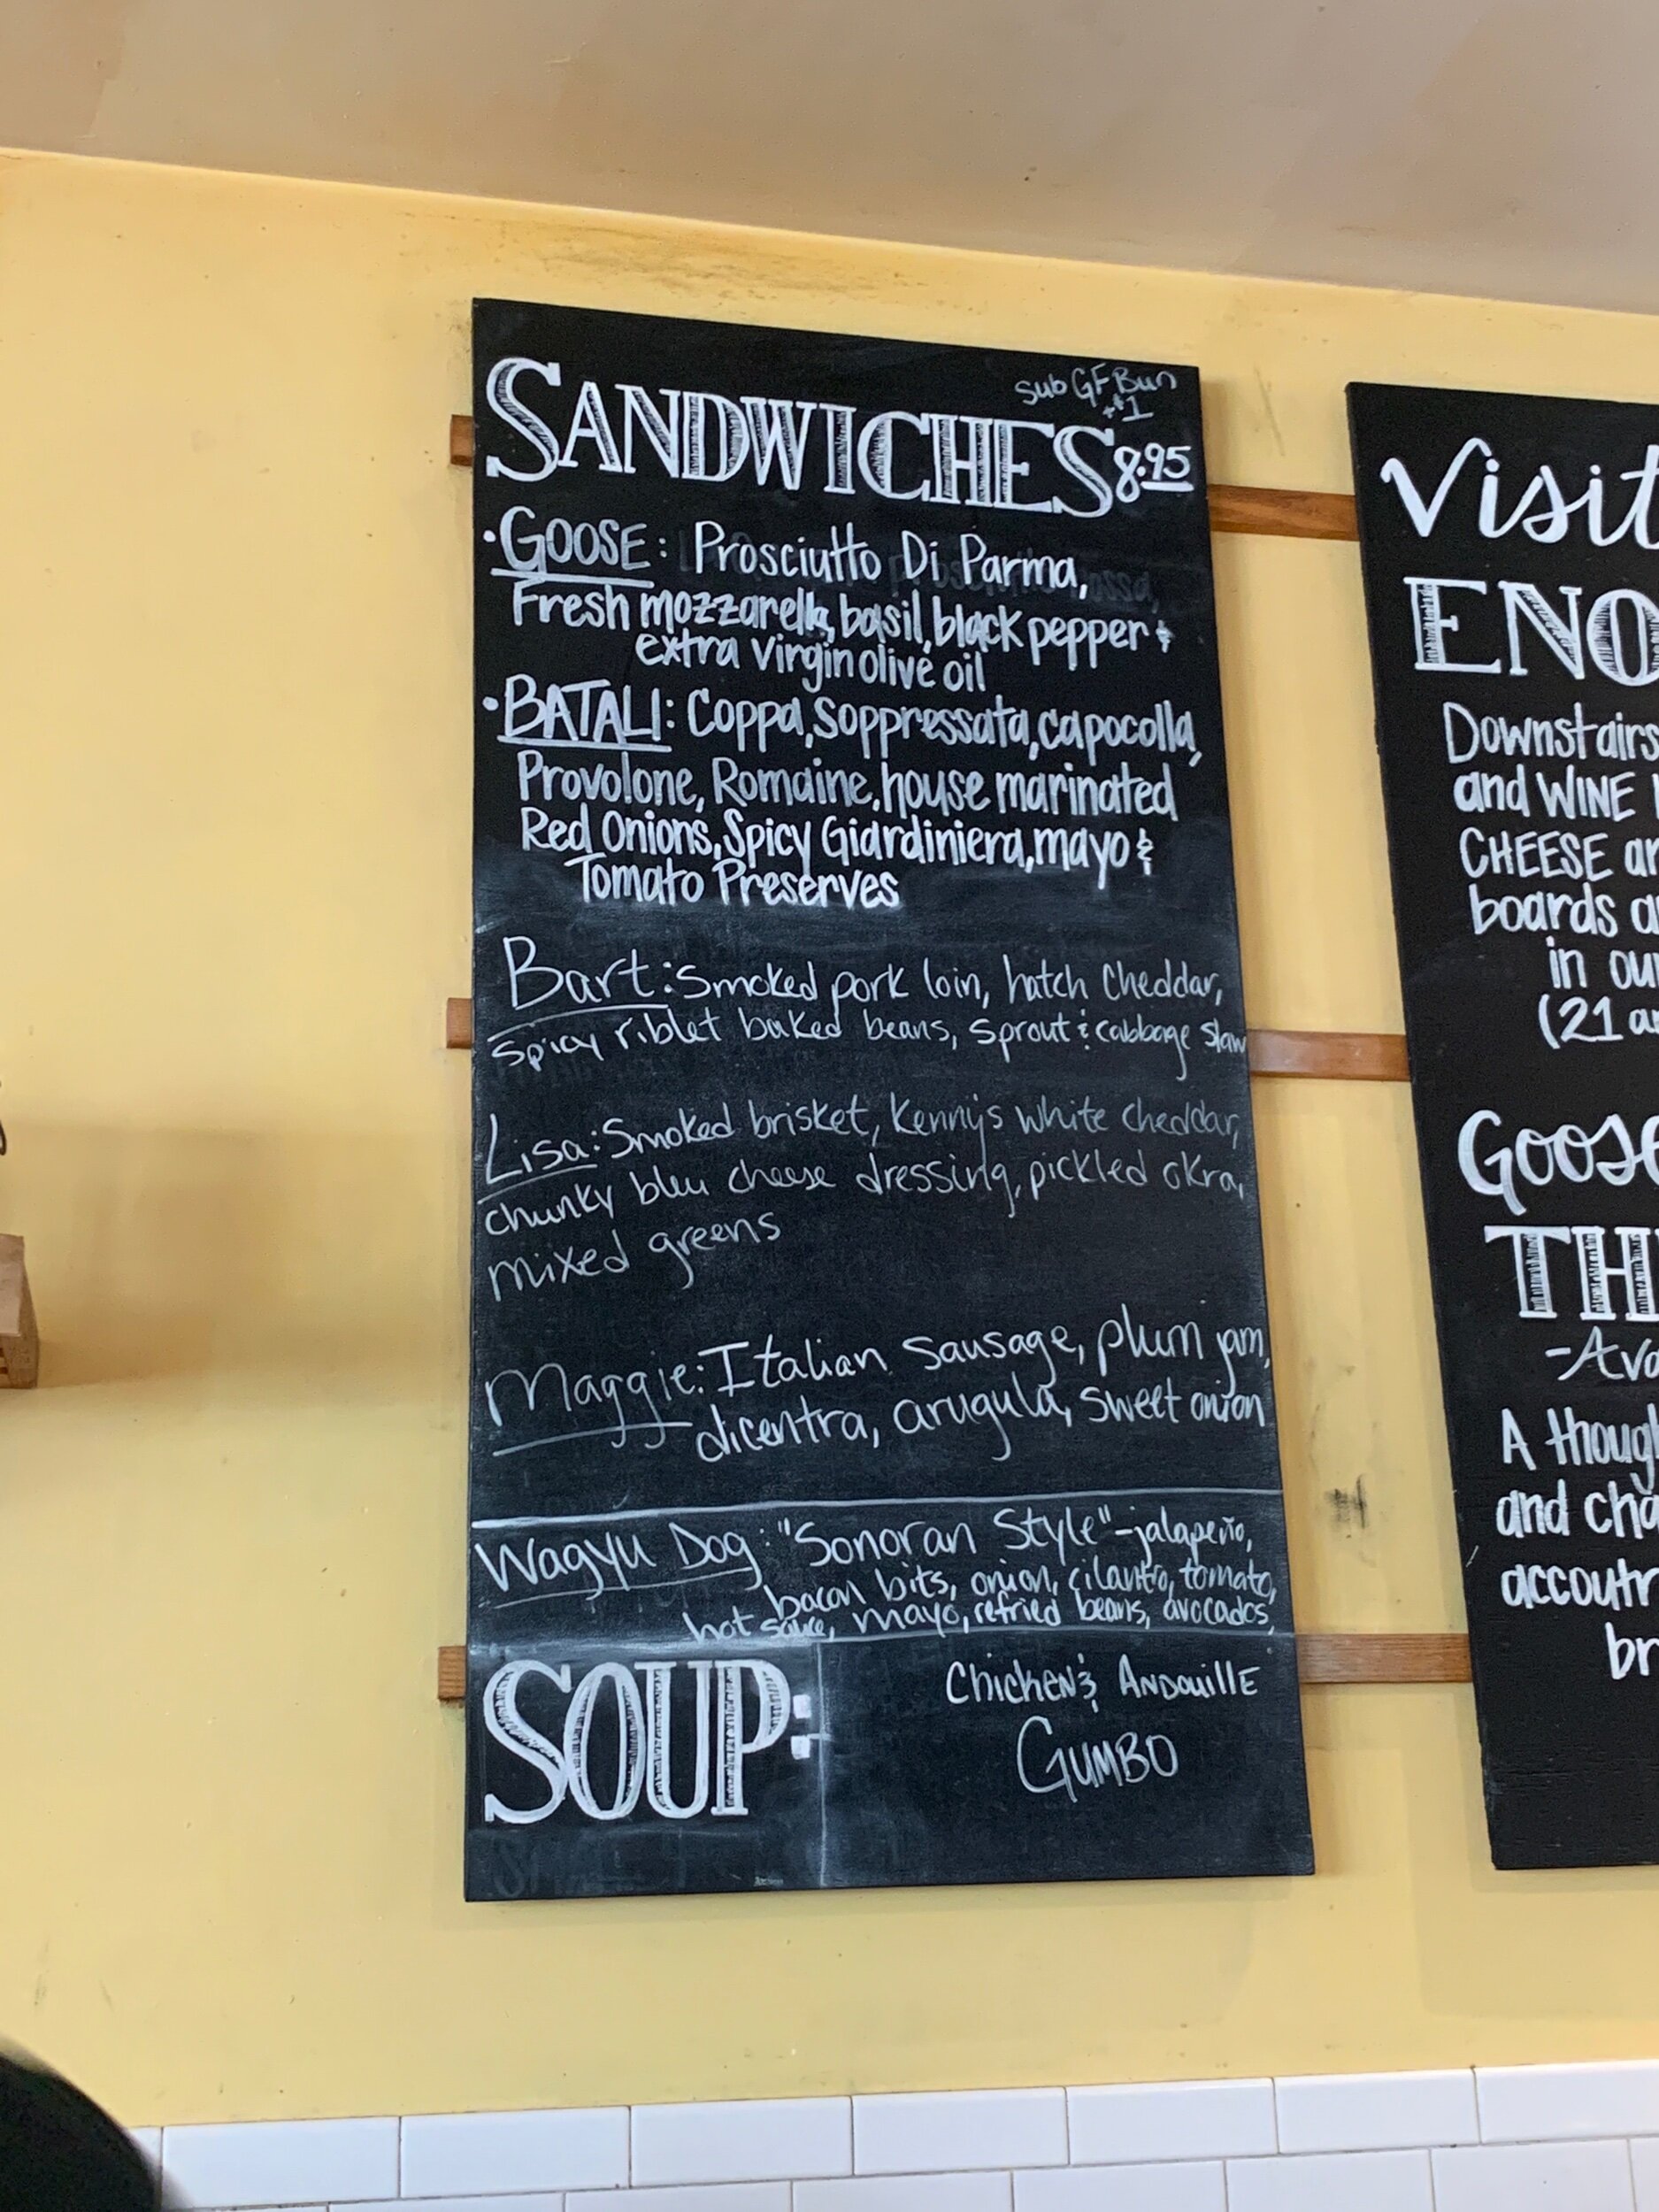 Sub GF Bun
+$1
SANDWICHES 8.95
• GOOSE: Prosciutto Di Parma,
Fresh mozzarella, basil, black pepper &
extra virgin olive oil
• BATALI: Coppa, Soppressata, capocolla,
Provolone, Romaine, house marinated
Red Onions, Spicy Giardiniera, mayo &
Tomato Preserves
Bart: Smoked pork loin, hatch cheddar,
spicy riblet baked beans, sprout & cabbage slaw
Lisa: Smoked brisket, Kenny's white cheddar,
chunky bleu cheese dressing, pickled okra,
mixed greens
Maggie: Italian sausage, plum jam,
dicentra, arugula, sweet onion
Wagyu Dog: "Sonoran Style" - jalapeño,
bacon bits, onion, cilantro, tomato,
hot sauce, mayo, refried beans, avocados,
SOUP:
Chicken & Andouille
Gumbo
Visit
ENO
Downstairs
and WINE
CHEESE
boards
in our
(21
Goose
TH
A
and cha
accoutr
br